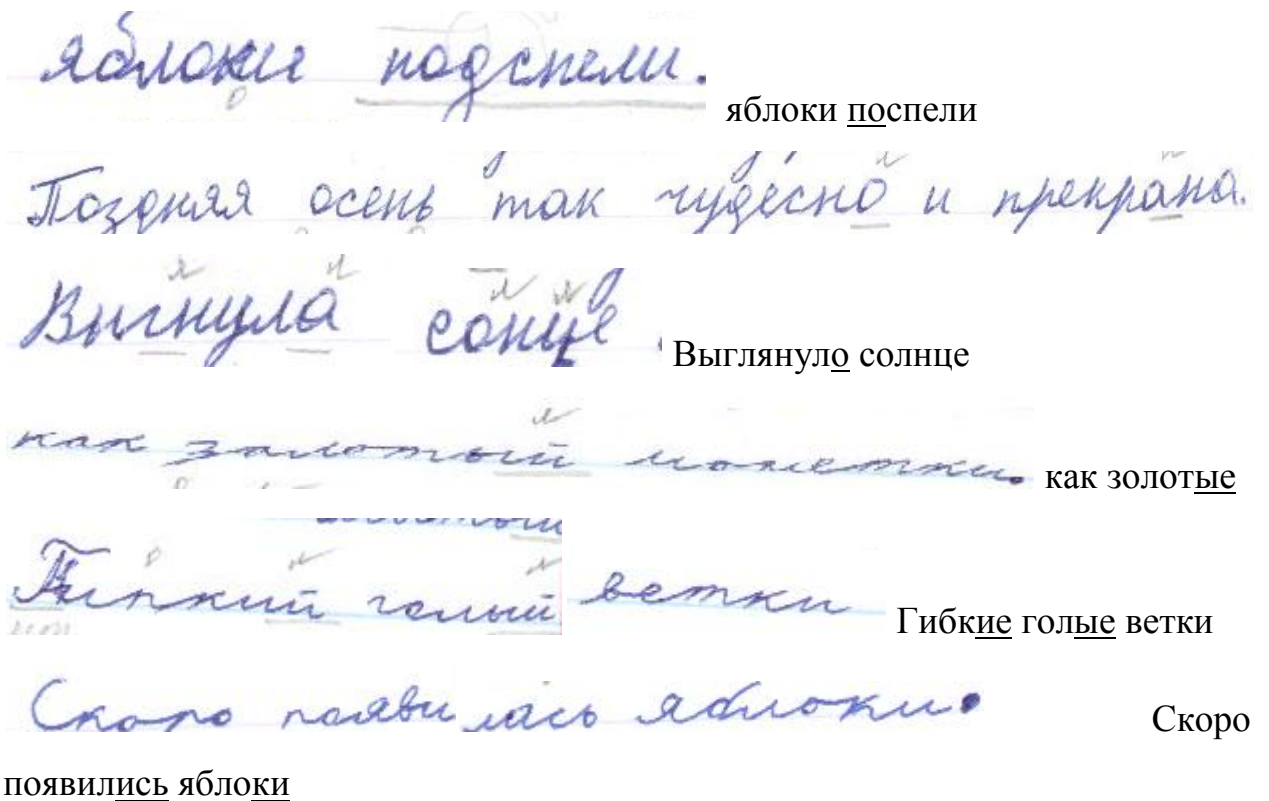 яблоки подспели. яблоки поспели
Поздняя осень так чудесно и прекрана.
Выгнула сонце. Выглянуло солнце
как залотый монетки. как золотые
Гипкий голый ветки Гибкие голые ветки
Скоро появилась яблоки. Скоро
появились яблоки